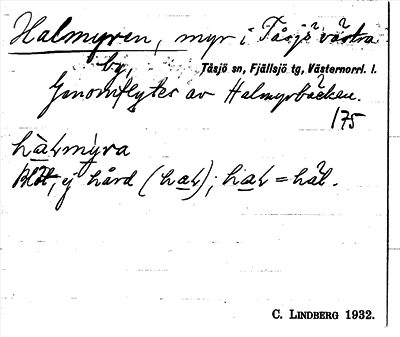 Halmyren, myr i Tåsjö västra
by, Tåsjö sn, Fjällsjö tg, Västernorrl. l.
Genomflytes av Halmyrbäcken.
175
hàLmýra
Blöt, ej hård (haL); haL = hål.
C. LINDBERG 1932.